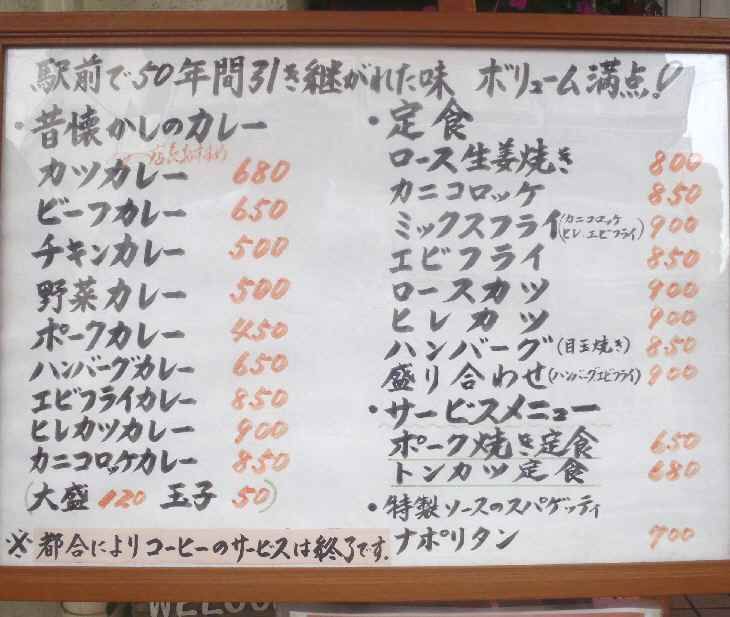 駅前で50年間引き継がれた味 ボリューム満点!
・昔懐かしのカレー
店長おすすめ
カツカレー 680
ビーフカレー 650
チキンカレー 500
野菜カレー 500
ポークカレー 450
ハンバーグカレー 650
エビフライカレー 850
ヒレカツカレー 900
カニコロッケカレー 850
(大盛 120 玉子 50)
※都合によりコーヒーのサービスは終了です.
・定食
ロース生姜焼き 800
カニコロッケ 850
ミックスフライ(カニコロッケ ヒレ エビフライ) 900
エビフライ 850
ロースカツ 900
ヒレカツ 900
ハンバーグ(目玉焼き) 850
盛り合わせ(ハンバーグエビフライ) 900
・サービスメニュー
ポーク焼き定食 650
トンカツ定食 680
・特製ソースのスパゲッティ
ナポリタン 700